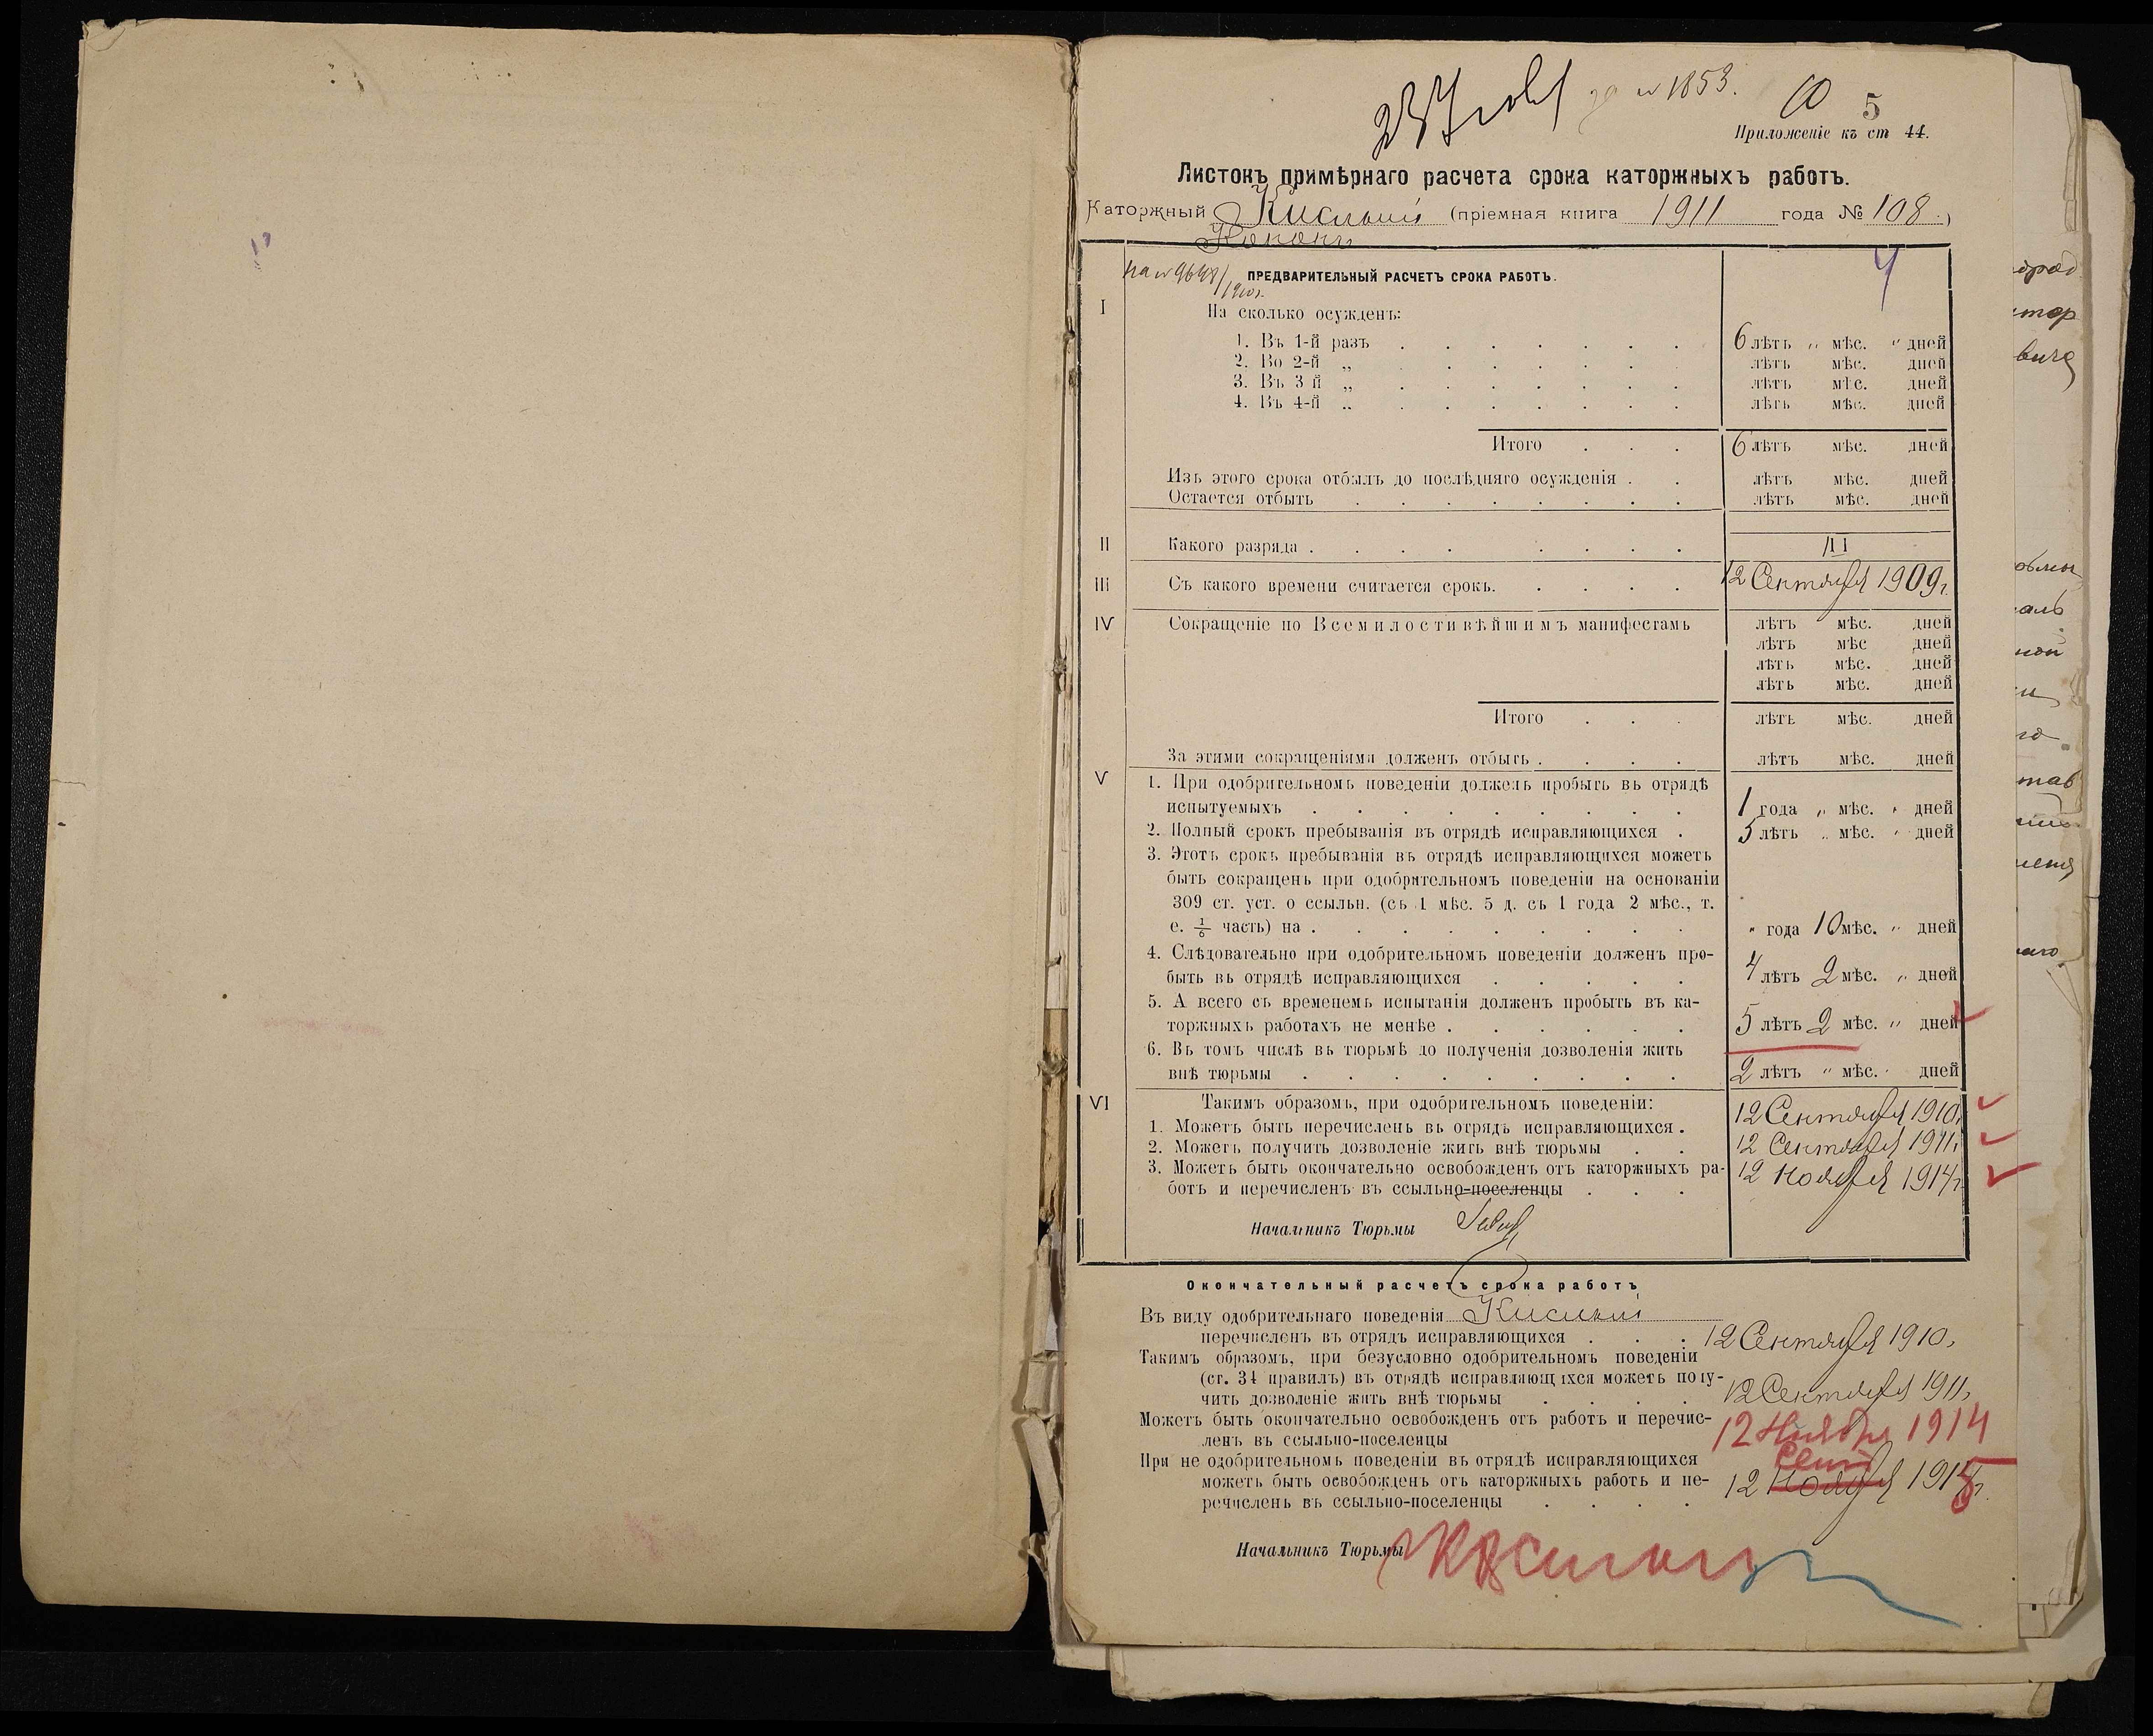 за № 1853.
10
5
Приложеніе къ ст 44.
Листокъ примѣрнаго расчета срока каторжныхъ работъ.
Каторжный Кислый (пріемная книга 1911 года № 108.)
Кононъ
на № 9648/1910 г.
ПРЕДВАРИТЕЛЬНЫЙ РАСЧЕТЪ СРОКА РАБОТЪ.
I
На сколько осужденъ:
1. Въ 1-й разъ . . . . . . . 6 лѣтъ „ мѣс. „ дней
2. Во 2-й „ . . . . . . лѣтъ мѣс. дней
3. Въ 3 й „ . . . . . . . лѣтъ мѣс. дней
4. Въ 4-й „ . . . . . . . лѣтъ мѣс. дней
Итого . . . 6 лѣтъ мѣс. дней
Изъ этого срока отбылъ до послѣдняго осужденія . . лѣтъ мѣс. дней
Остается отбыть . . . . . . . . лѣтъ мѣс. дней
II Какого разряда . . . . . . . . III
III Съ какого времени считается срокъ. . . . . 12 Сентября 1909 г.
IV Сокращеніе по Всемилостивѣйшимъ манифестамъ лѣтъ мѣс. дней
лѣтъ мѣс дней
лѣтъ мѣс. дней
лѣтъ мѣс. дней
Итого . . . лѣтъ мѣс. дней
За этими сокращеніями долженъ отбыть . . . . лѣтъ мѣс. дней
V 1. При одобрительномъ поведеніи долженъ пробыть въ отрядѣ
испытуемыхъ . . . . . . . . . 1 года „ мѣс. „ дней
2. Полный срокъ пребыванія въ отрядѣ исправляющихся . 5 лѣтъ „ мѣс. „ дней
3. Этотъ срокъ пребыванія въ отрядѣ исправляющихся можетъ
быть сокращенъ при одобрительномъ поведеніи на основаніи
309 ст. уст. о ссыльн. (съ 1 мѣс. 5 д. съ 1 года 2 мѣс., т.
е. 1/6 часть) на . . . . . . . . . „ года 10 мѣс. „ дней
4. Слѣдовательно при одобрительномъ поведеніи долженъ про-
быть въ отрядѣ исправляющихся . . . . . 4 лѣтъ 2 мѣс. „ дней
5. А всего съ временемъ испытанія долженъ пробыть въ ка-
торжныхъ работахъ не менѣе . . . . . . 5 лѣтъ 2 мѣс. „ дней
6. Въ томъ числѣ въ тюрьмѣ до полученія дозволенія жить
внѣ тюрьмы . . . . . . . . . 2 лѣтъ „ мѣс. „ дней
VI Такимъ образомъ, при одобрительномъ поведеніи:
1. Можетъ быть перечисленъ въ отрядъ исправляющихся. 12 Сентября 1910 г.
2. Можетъ получить дозволеніе жить внѣ тюрьмы . . 12 Сентября 1911 г.
3. Можетъ быть окончательно освобожденъ отъ каторжныхъ ра-
ботъ и перечисленъ въ ссыльно-поселенцы . . . 12 Ноября 1914 г.
Начальникъ Тюрьмы
Окончательный расчетъ срока работъ
Въ виду одобрительнаго поведенія Кислый
перечисленъ въ отрядъ исправляющихся . . . 12 Сентября 1910 г.
Такимъ образомъ, при безусловно одобрительномъ поведеніи
(ст. 34 правилъ) въ отрядѣ исправляющихся можетъ полу-
чить дозволеніе жить внѣ тюрьмы . . . . 12 Сентября 1911 г.
Можетъ быть окончательно освобожденъ отъ работъ и перечис-
ленъ въ ссыльно-поселенцы 12 Ноября 1914
При не одобрительномъ поведеніи въ отрядѣ исправляющихся Сент
можетъ быть освобожденъ отъ каторжныхъ работъ и пе- 12 Ноября 1915 г.
речисленъ въ ссыльно-поселенцы . . . .
Начальникъ Тюрьмы